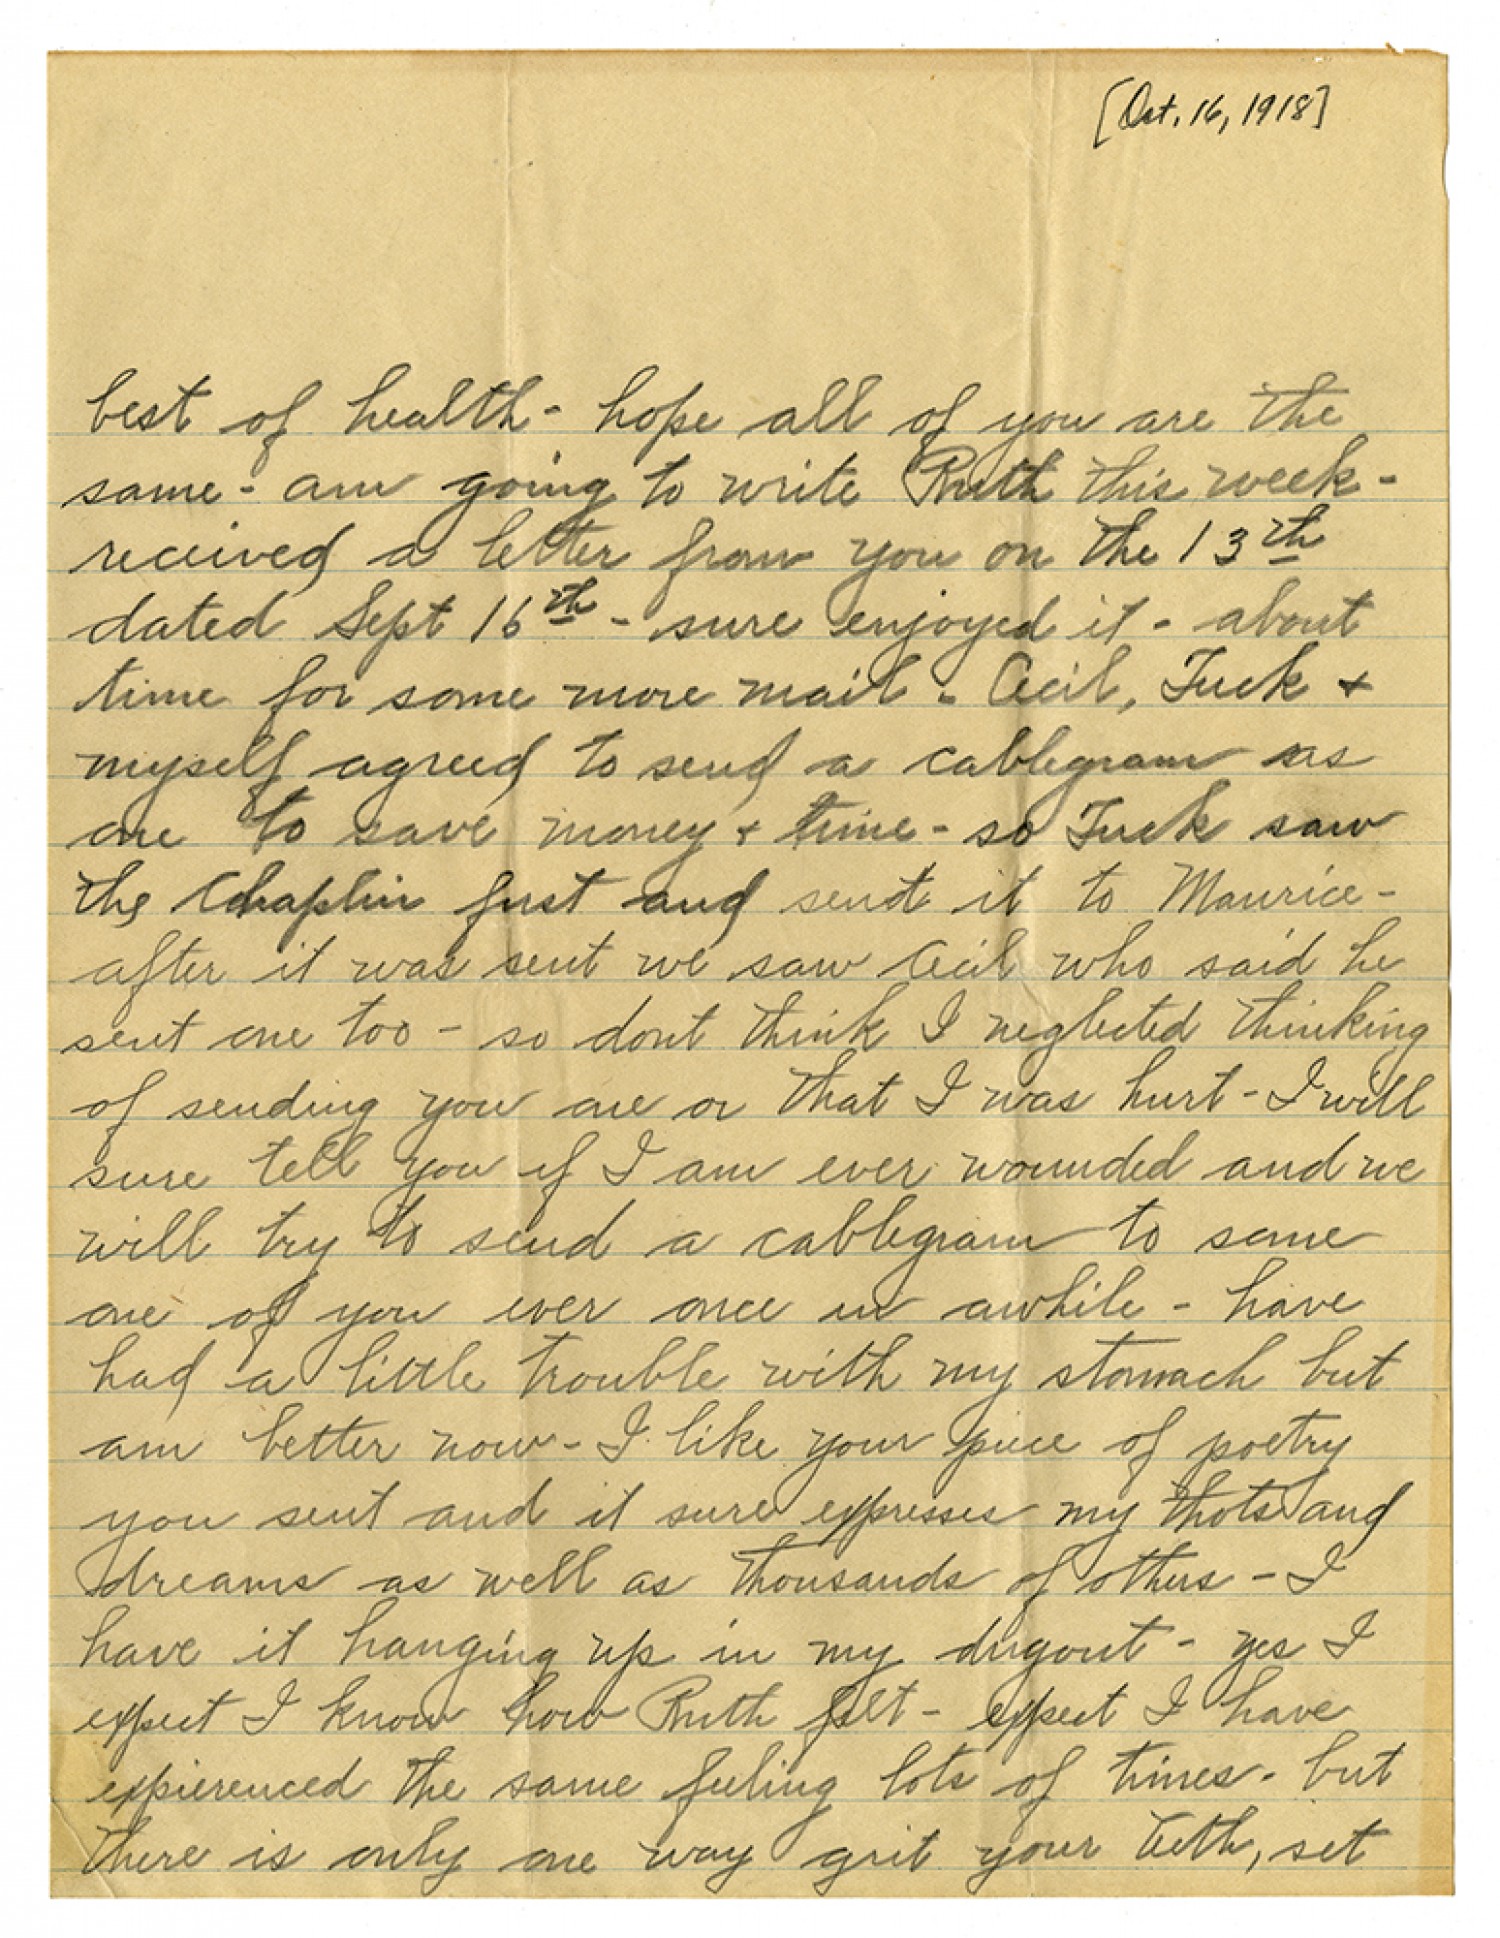 [Oct. 16, 1918]
best of health - hope all of you are the
same - am going to write Ruth this week -
received a letter from you on the 13th
dated Sept 16th - sure enjoyed it - about
time for some more mail - Cecil, Tuck +
myself agreed to send a cablegram as
one to save money + time - so Tuck saw
the Chaplin first and sent it to Maurice -
after it was sent we saw Cecil who said he
sent one too - so dont think I neglected thinking
of sending you one or that I was hurt - I will
sure tell you if I am ever wounded and we
will try to send a cablegram to some
one of you ever once in awhile - have
had a little trouble with my stomach but
am better now - I like your piece of poetry
you sent and it sure expresses my thots and
dreams as well as thousands of others - I
have it hanging up in my dugout - yes I
expect I know how Ruth felt - expect I have
expierenced the same feeling lots of times - but
there is only one way grit your teeth, set